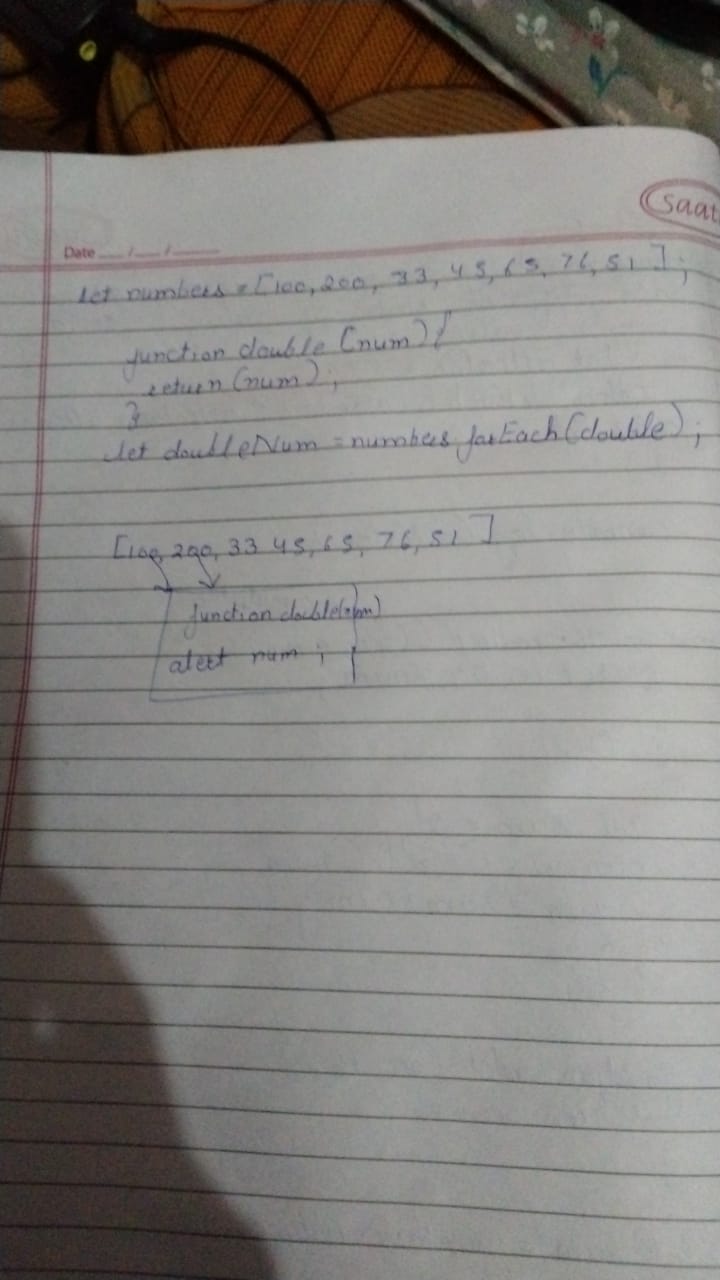 Saat
Date
let numbers = [100, 200, 33, 45, 65, 76, 51];
function double (num) {
return (num);
}
let doubleNum = numbers forEach (double);
[100, 200, 33 45, 65, 76, 51]
function double (num)
alert num ;